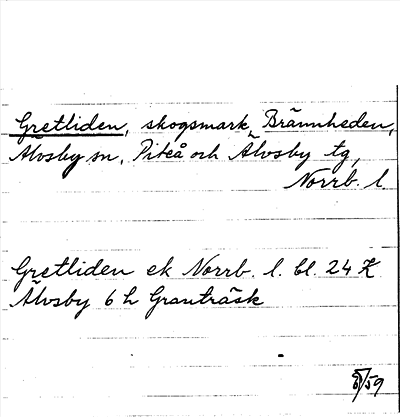 Gretliden, skogsmark, Brännheden,
Älvsby sn, Piteå och Älvsby tg,
Norrb. l.
Gretliden ek Norrb. l. bl. 24 K
Älvsby 6 h Granträsk
8/59